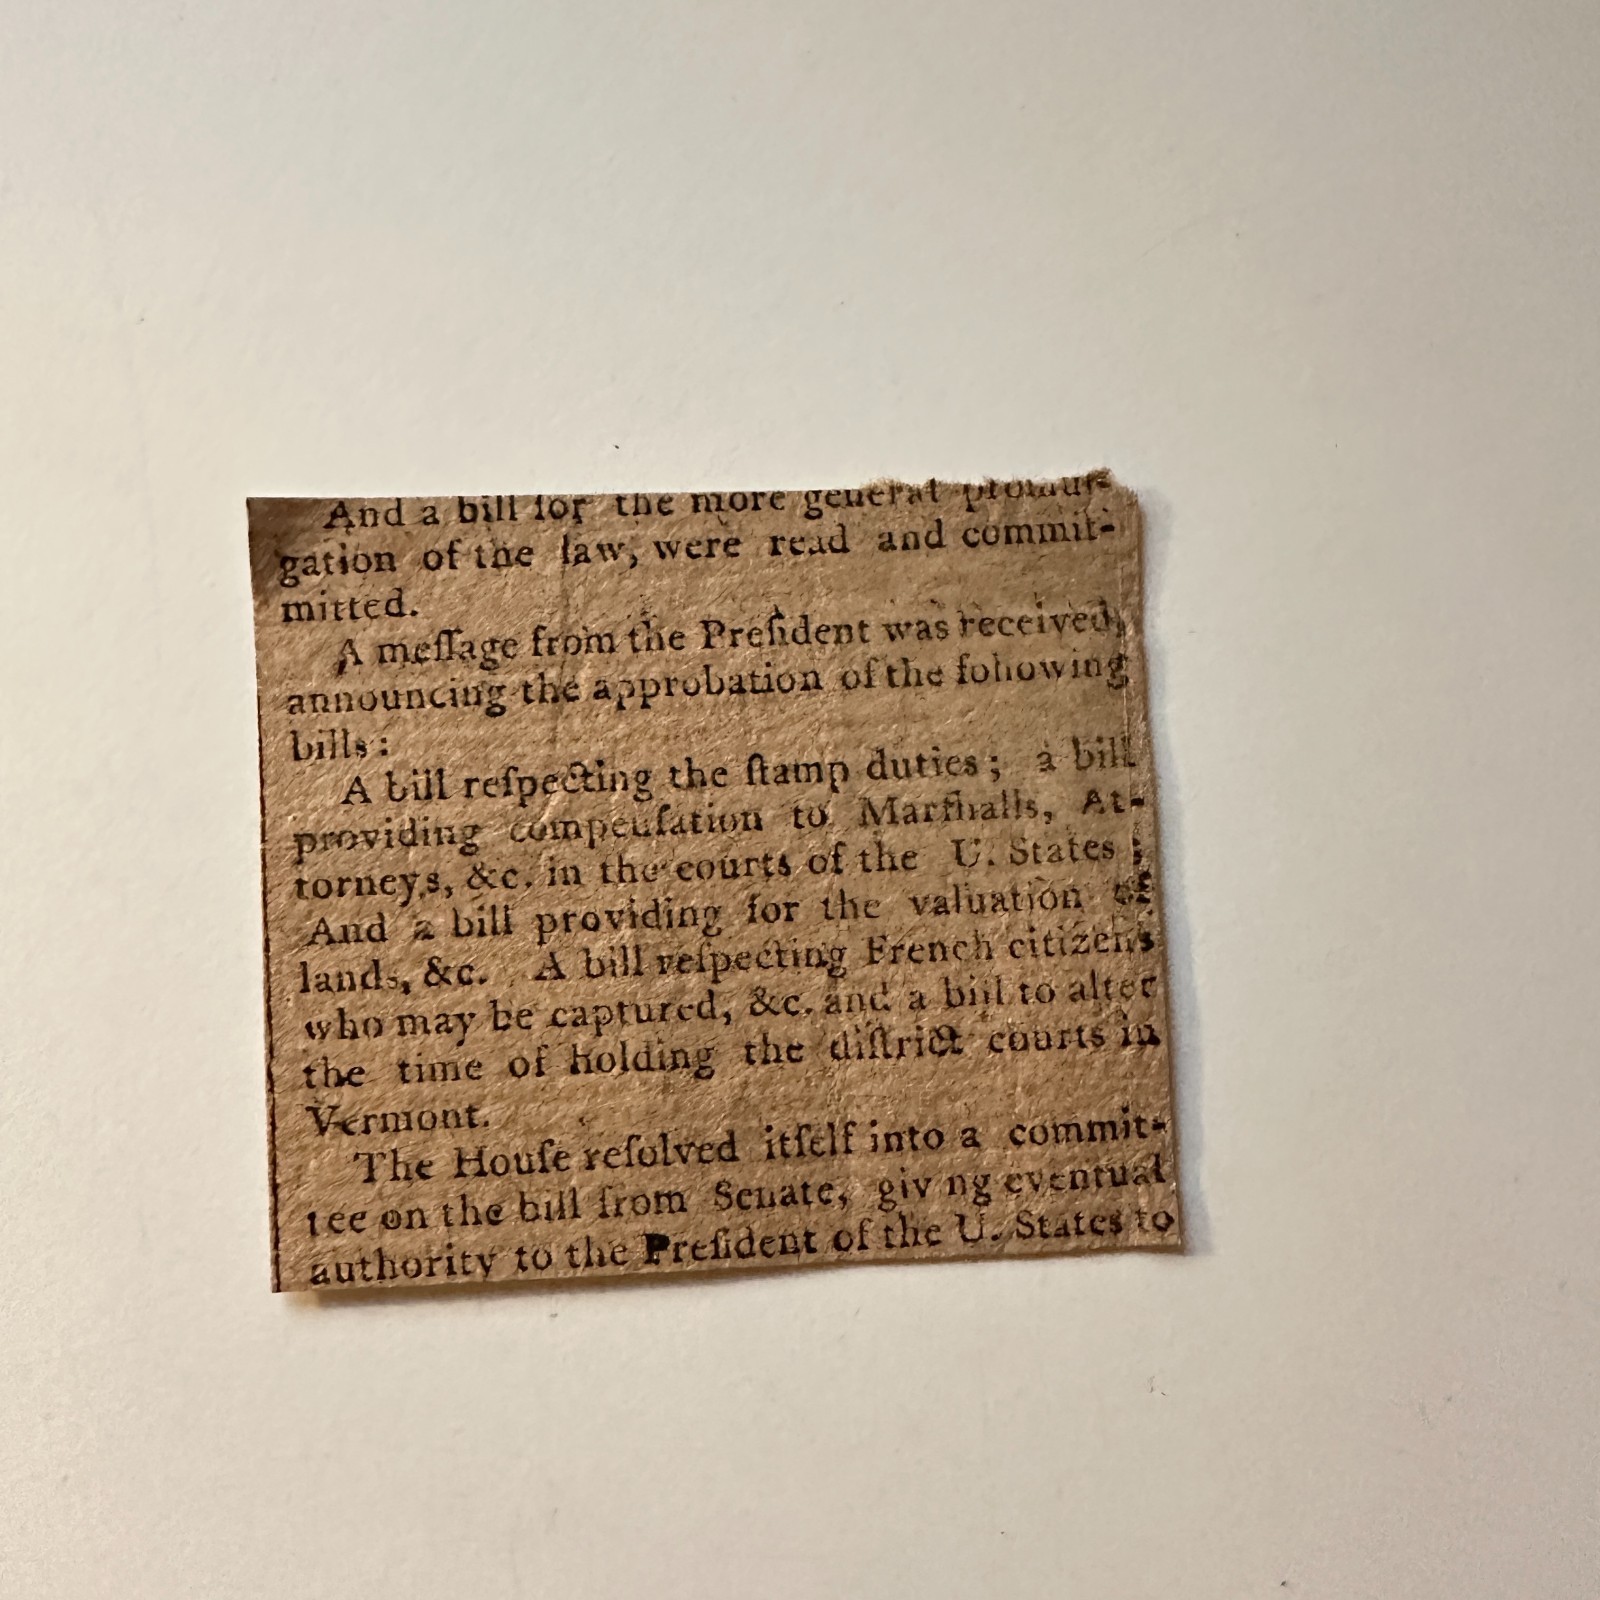 And a bill for the more general promul-
gation of the law, were read and commit-
mitted.
A meſſage from the Preſident was received,
announcing the approbation of the following
bills:
A bill reſpecting the ſtamp duties; a bill
providing compenſation to Marſhalls, At-
torneys, &c. in the courts of the U. States;
And a bill providing for the valuation of
lands, &c. A bill reſpecting French citizens
who may be captured, &c. and a bill to alter
the time of holding the diſtrict courts in
Vermont.
The Houſe reſolved itſelf into a commit-
tee on the bill from Senate, giv ng eventual
authority to the Preſident of the U. States to